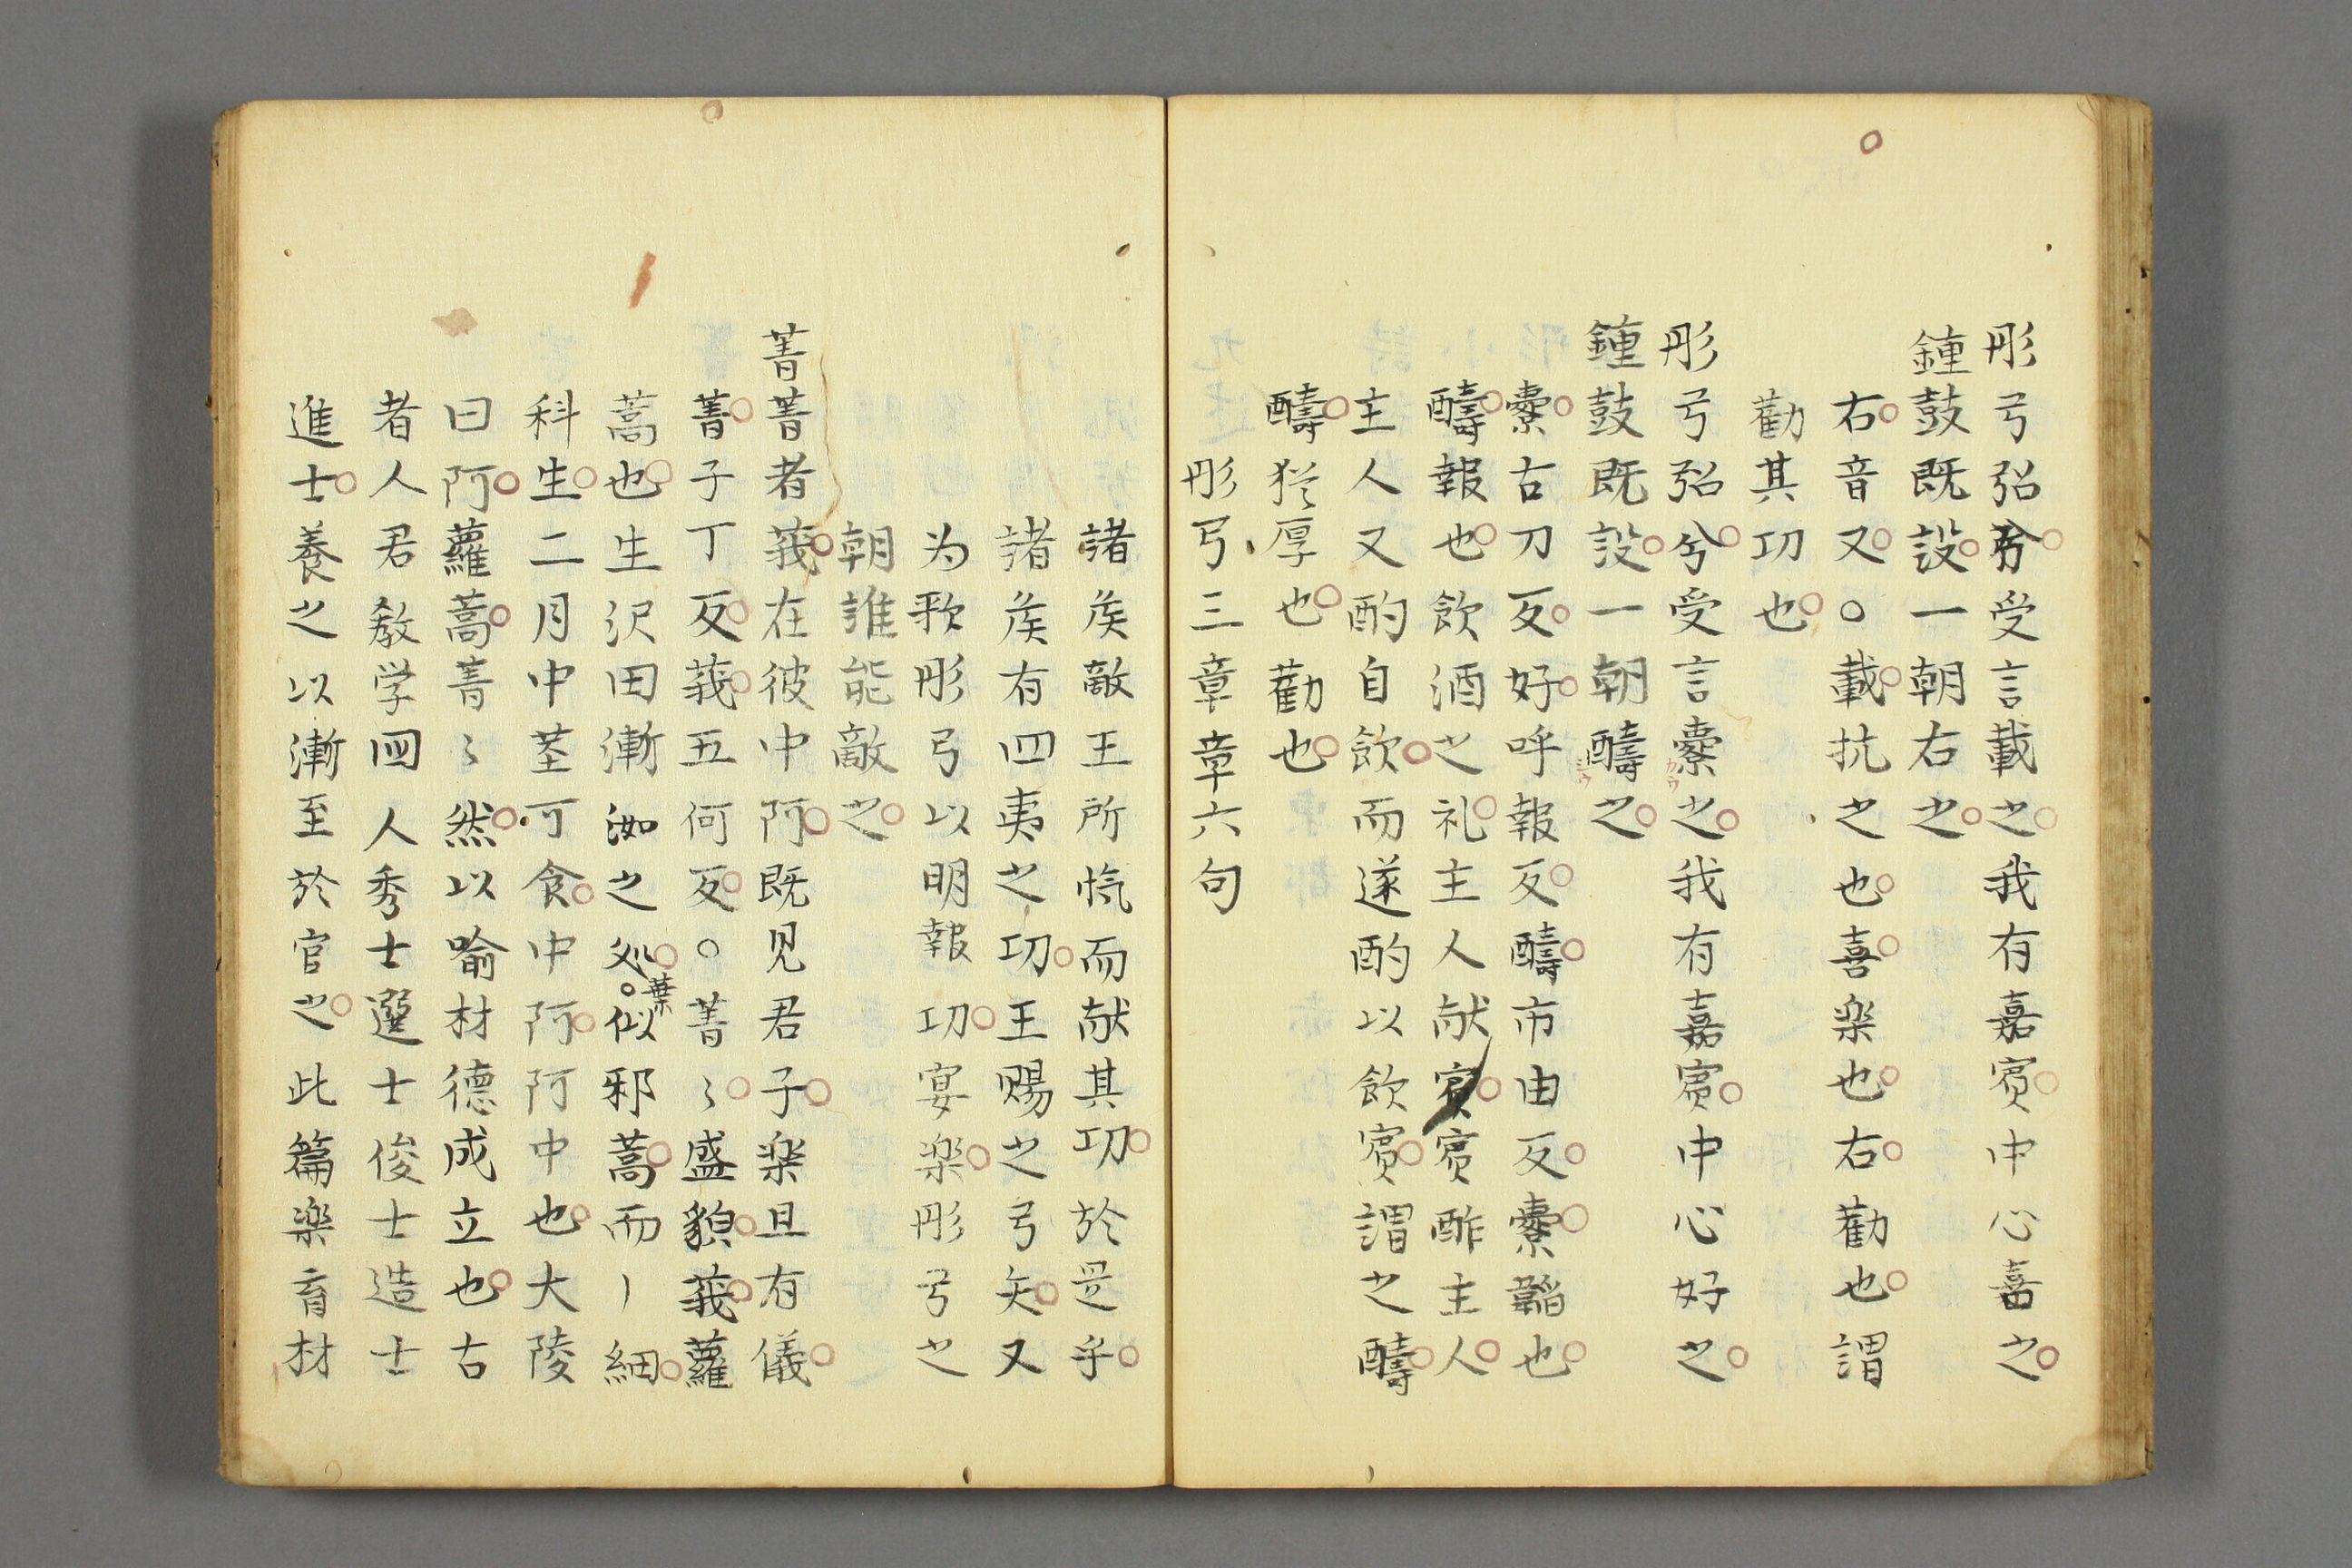 彤弓弨兮受言載之我有嘉賓中心喜之
鍾鼓既設一朝右之
右音又○載抗之也喜楽也右勸也謂
勸其功也
彤弓弨兮受言櫜之我有嘉賓中心好之
鍾鼓既設一朝醻之
櫜古刀反好呼報反醻市由反櫜韜也
醻報也飲酒之礼主人献賓賓酢主人
主人又酌自飲而遂酌以飲賓謂之醻
醻猶厚也勸也
彤弓三章章六句
諸侯敵王所愾而献其功於是乎
諸侯有四夷之功王賜之弓矢又
为歌彤弓以明報功宴楽彤弓之
朝誰能敵之
菁菁者莪在彼中阿既見君子楽且有儀
菁子丁反莪五何反○菁〻盛貌莪蘿
蒿也生沢田漸洳之処○葉似邪蒿而丨細
科生二月中茎可食中阿阿中也大陵
曰阿蘿蒿菁〻然以喻材德成立也古
者人君教学国人秀士選士俊士造士
進士養之以漸至於官之此篇楽育材